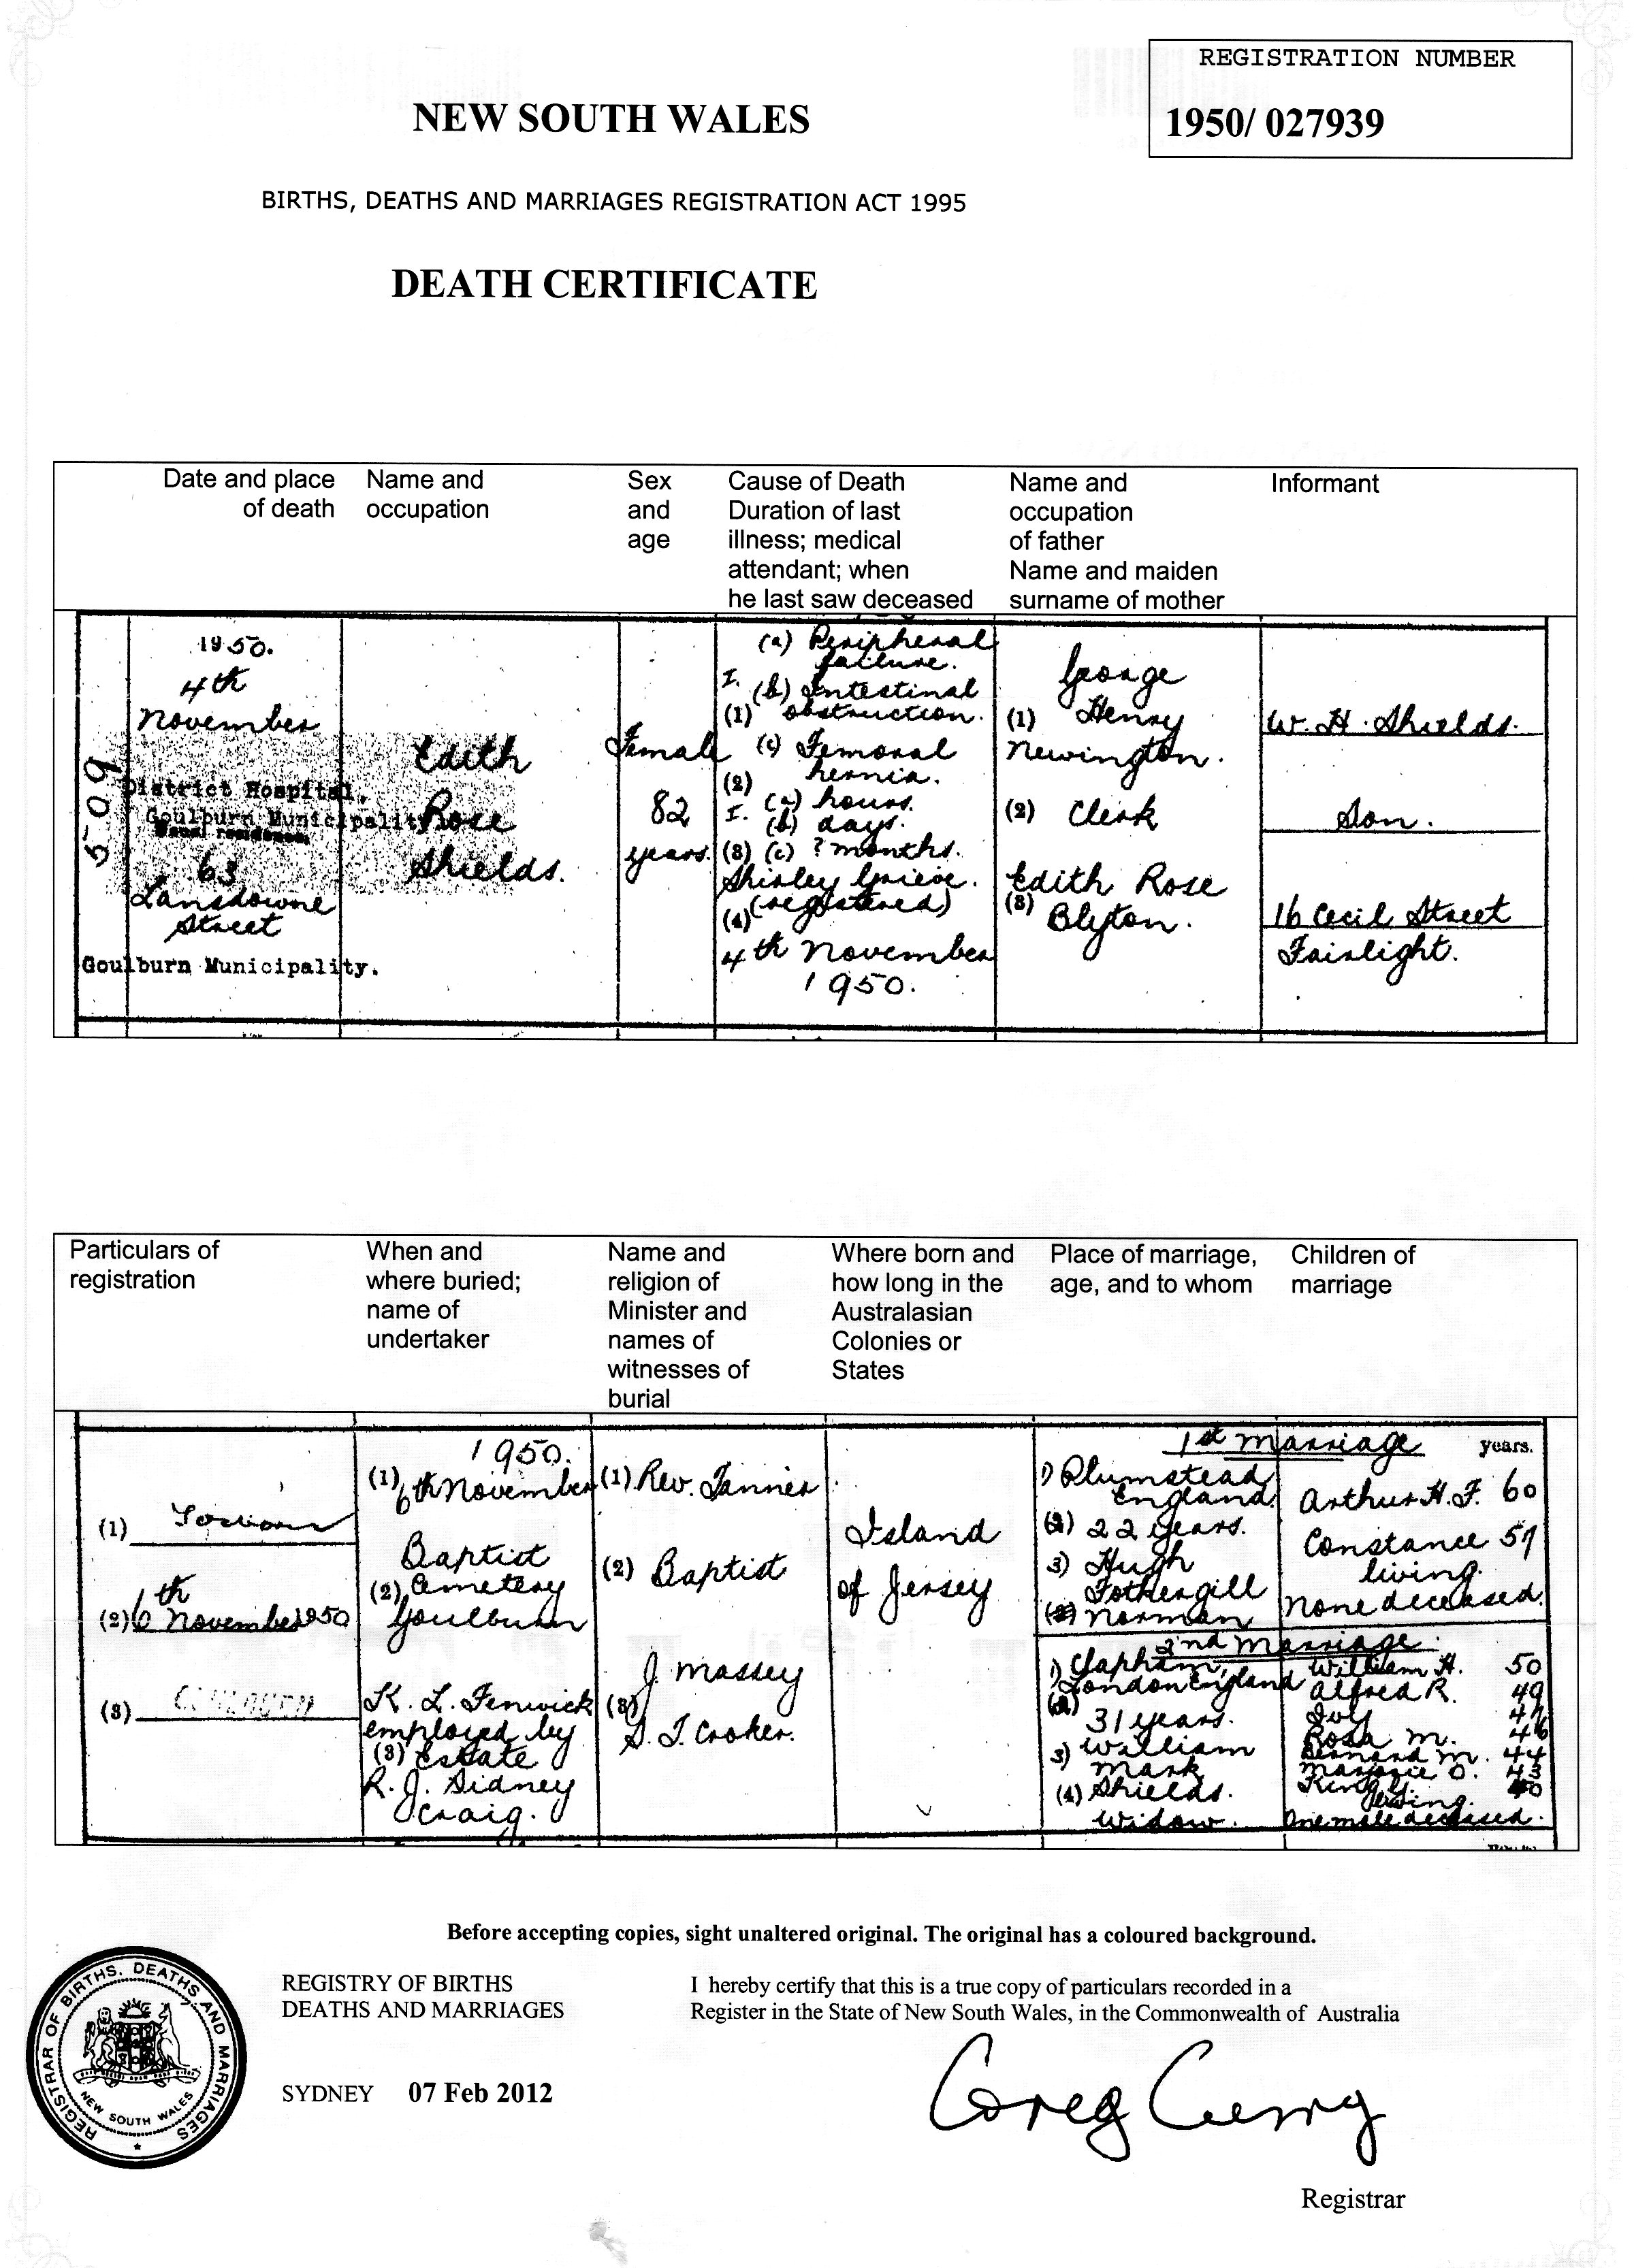 REGISTRATION NUMBER
1950/ 027939
NEW SOUTH WALES
BIRTHS, DEATHS AND MARRIAGES REGISTRATION ACT 1995
DEATH CERTIFICATE
Date and place
of death
Name and
occupation
Sex
and
age
Cause of Death
Duration of last
illness; medical
attendant; when
he last saw deceased
Name and
occupation
of father
Name and maiden
surname of mother
Informant
509
1950.
4th
November
District Hospital,
Goulburn Municipality
Usual residence
63
Lansdowne
Street
Goulburn Municipality.
Edith
Rose
Shields.
Female
82
years.
(a) Peripheral
failure.
I. (b) Intestinal
(1) obstruction.
(c) Femoral
(2) hernia.
I. (a) hours.
(b) days.
(3) (c) ? months.
Shirley Grieve.
(4) (registered)
4th November
1950.
George
(1) Henry
Newington.
(2) Clerk
Edith Rose
(3) Blyton.
W. H. Shields.
Son.
16 Cecil Street
Fairlight.
Particulars of
registration
When and
where buried;
name of
undertaker
Name and
religion of
Minister and
names of
witnesses of
burial
Where born and
how long in the
Australasian
Colonies or
States
Place of marriage,
age, and to whom
Children of
marriage
(1)
(2) 6th
November 1950
(3)
1950.
(1) 6th November
Baptist
(2) Cemetery
Goulburn
K. L. Fenwick
employed by
(3) Estate
R. J. Sidney
Craig.
(1) Rev. Tanner
(2) Baptist
J. Massey
(3)
S. T. Croker.
Island
of Jersey
1st Marriage
1) Plumstead
England.
(2) 22 years.
3) Hugh
Fothergill
Norman
years.
Arthur H. F. 60
Constance 57
living.
None deceased.
2nd Marriage.
1) Clapham,
London England
(2)
31 years.
3) William
Mark
(4) Shields.
Widow.
William H. 50
Alfred R. 49
Ivy
Rosa M. 46
Bernard M. 44
Marjorie O. 43
40
living.
One male deceased.
Before accepting copies, sight unaltered original. The original has a coloured background.
REGISTRAR OF BIRTHS, DEATHS AND MARRIAGES
NEW SOUTH WALES
REGISTRY OF BIRTHS
DEATHS AND MARRIAGES
SYDNEY 07 Feb 2012
I hereby certify that this is a true copy of particulars recorded in a
Register in the State of New South Wales, in the Commonwealth of Australia
Greg Curry
Registrar